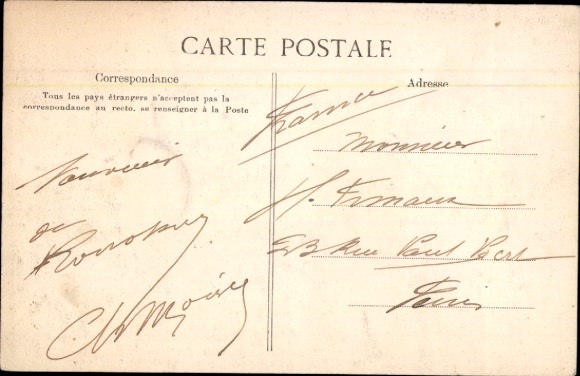 CARTE POSTALE
Correspondance
Tous les pays étrangers n'acceptent pas la
correspondance au recto. se renseigner à la Poste
Souvenir
de
Adresse
France
Monsieur
H.
Rue Paul
Paris